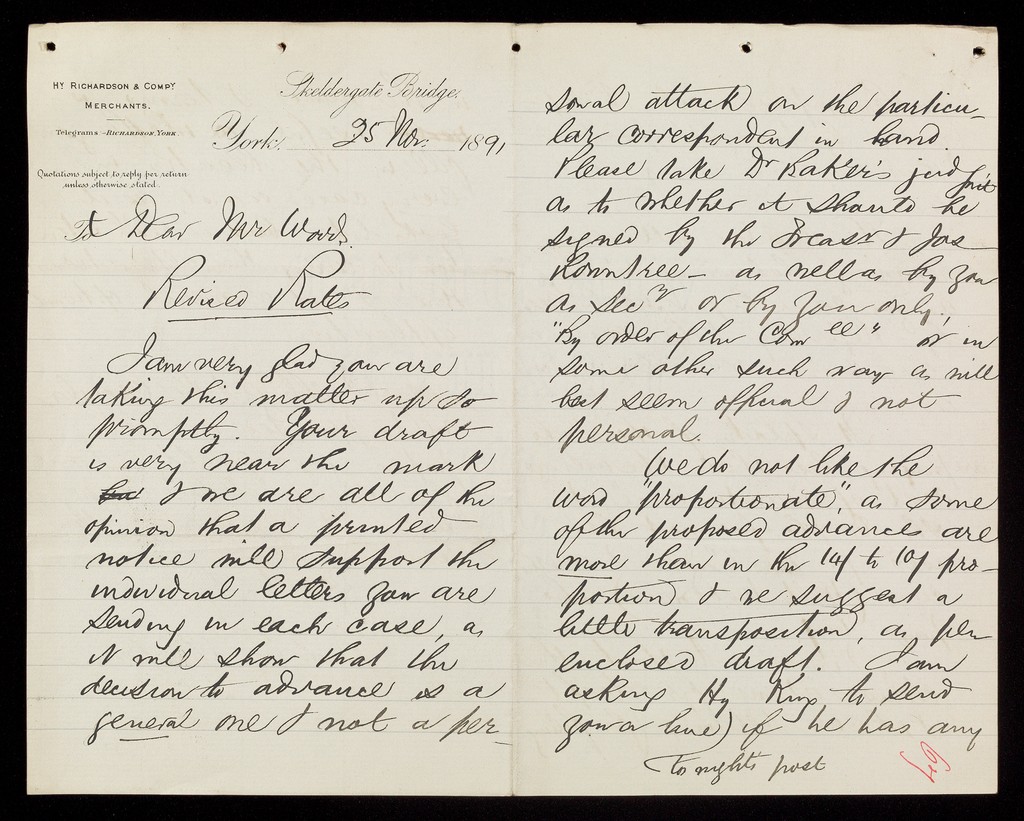 Hy RICHARDSON & COMPY
MERCHANTS.
Telegrams - RICHARDSON, YORK.
Quotations subject to reply per return
unless otherwise stated.
Skeldergate Bridge,
York. 25 Nov. 1891
Dear Mr Ward.
Revised Rates
I am very glad you are
taking this matter up so
promptly. Your draft
is very near the mark
& we are all of the
opinion that a printed
notice will support the
individual letters you are
sending in each case, as
it will show that the
decision to advance is a
general one & not a per-
sonal attack on the particu-
lar correspondent in hand.
Please take Dr Baker's judgmt
as to whether it should be
signed by the Treasr & Jos
Rowntree - as well as by you
as Secy or by you only,
"By order of the Comee" or in
some other such way as will
best seem official & not
personal.
We do not like the
word "proportionate", as some
of the proposed advances are
more than in the 14/ to 10/ pro-
portion & we suggest a
little transposition, as per
enclosed draft. I am
asking Hy King to send
you a line) if he has any
to night's post